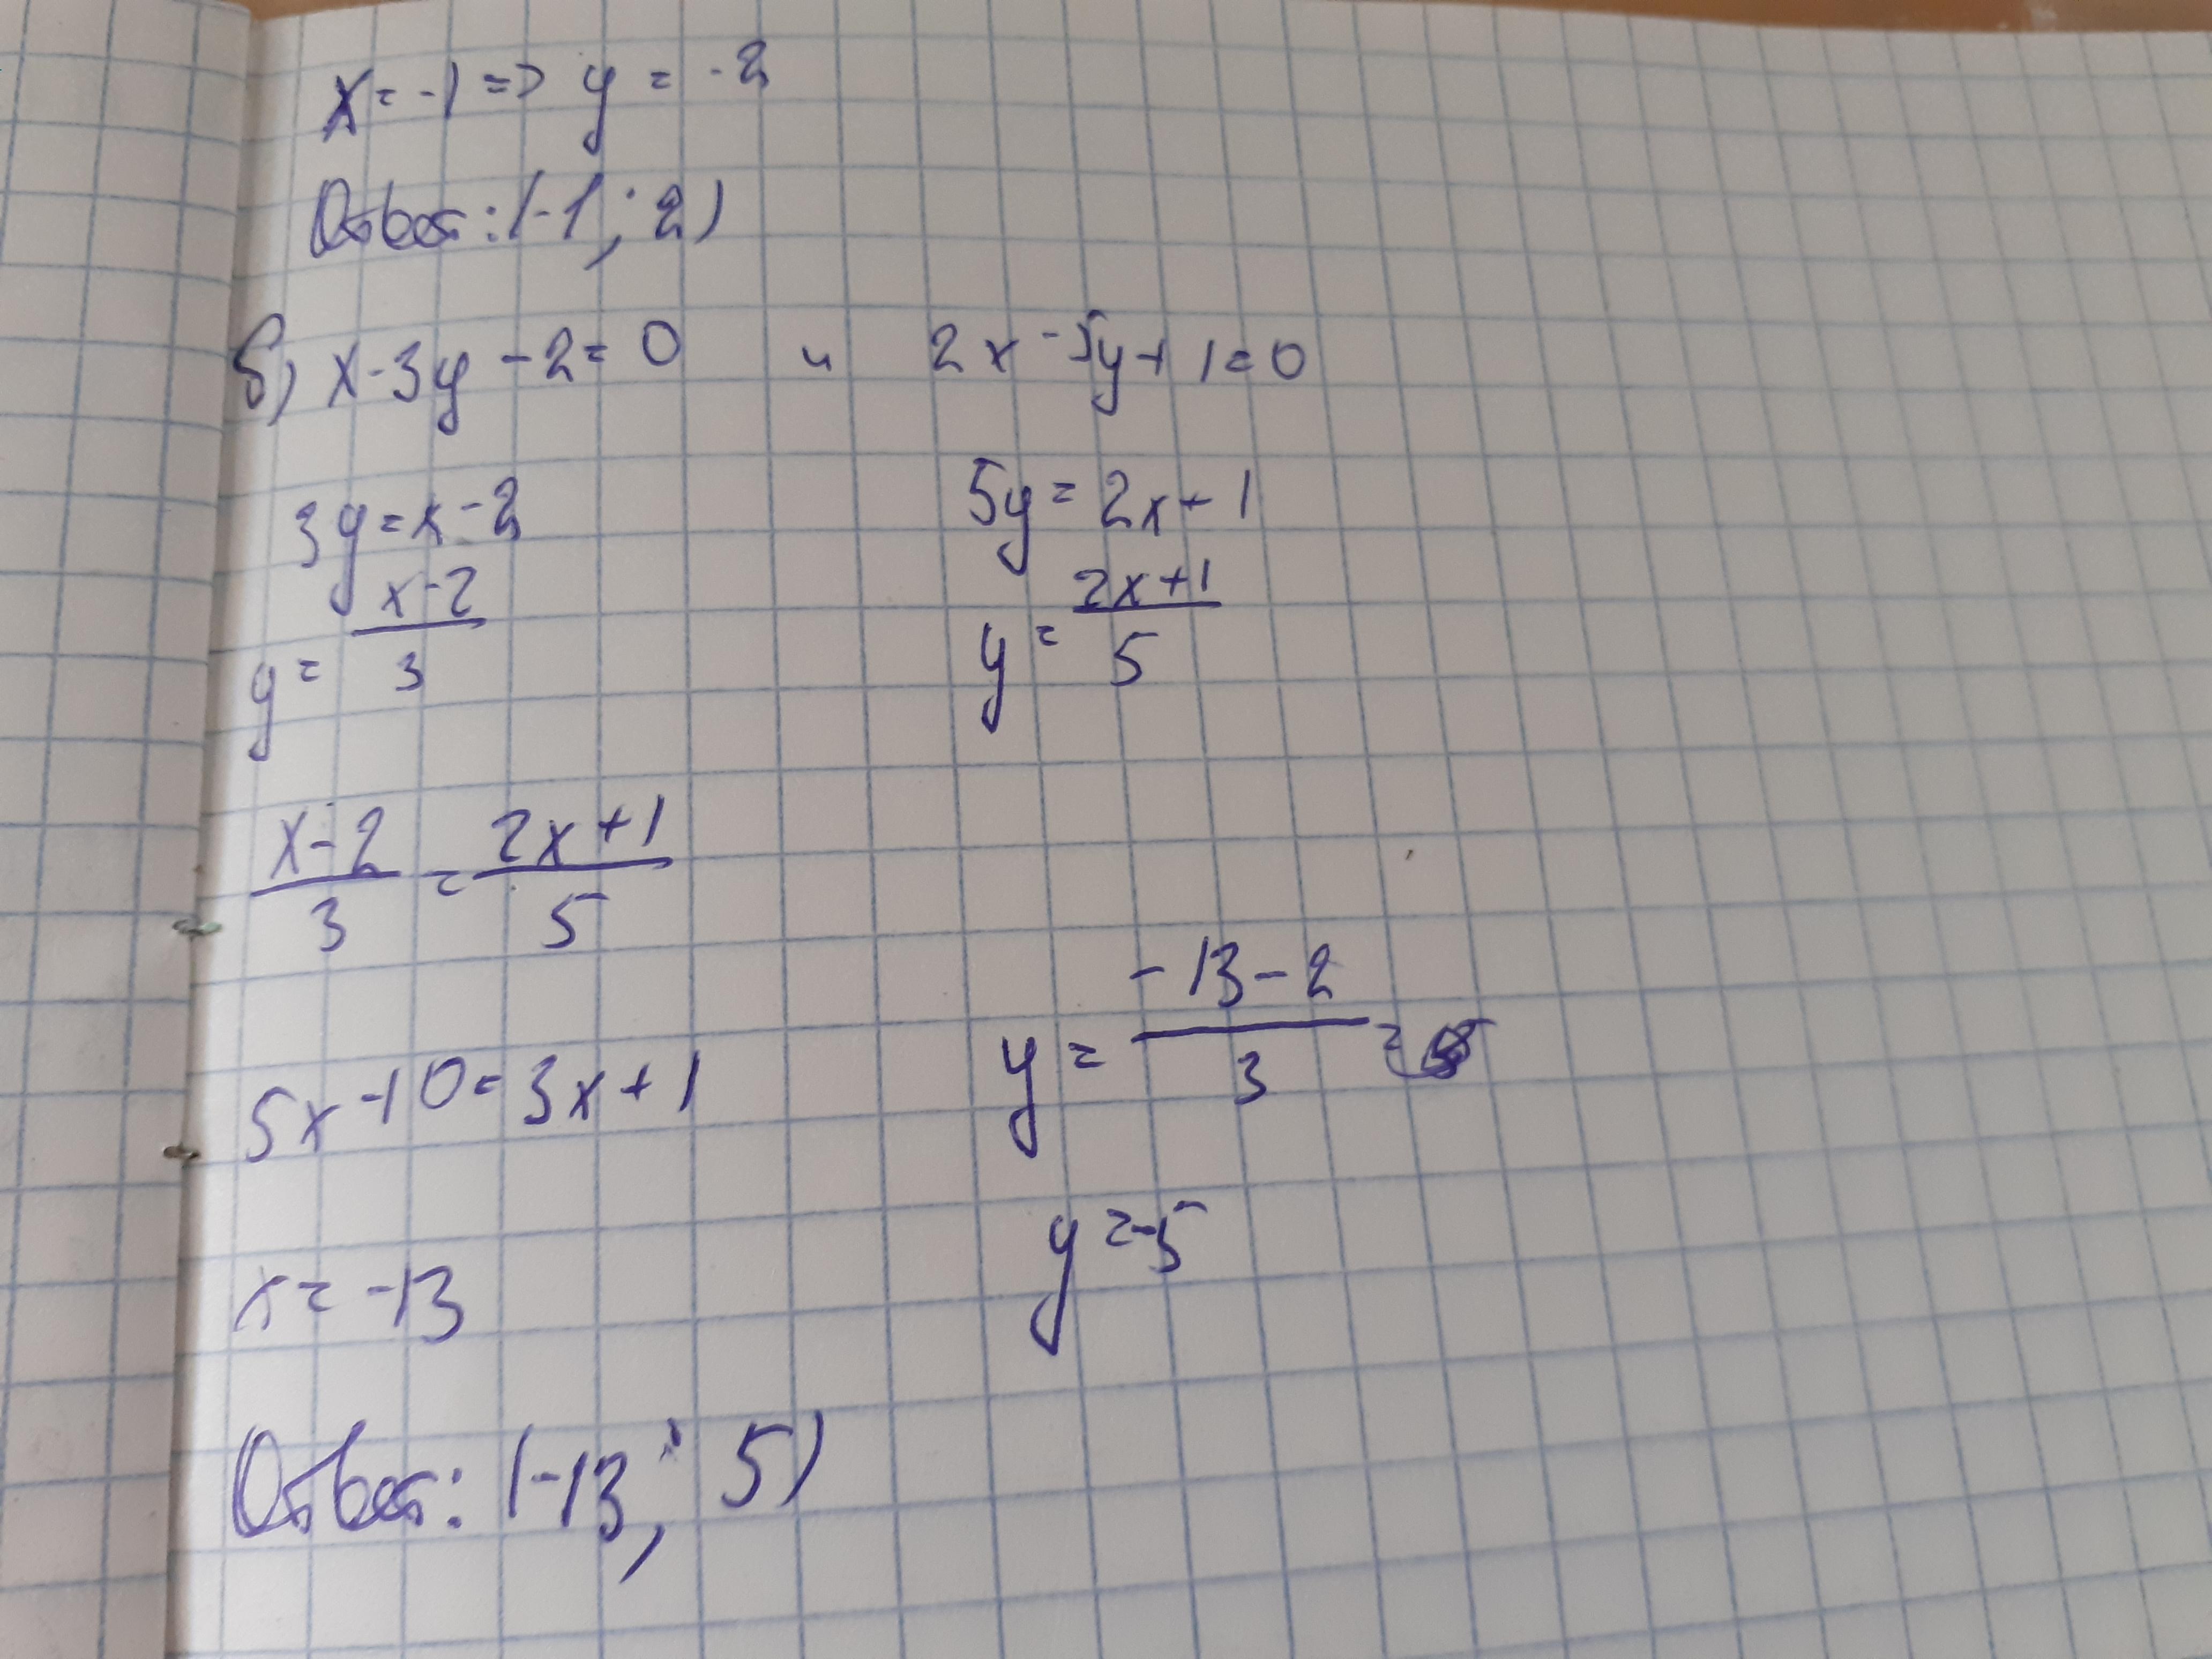 x = -1 => y = -2
Ответ: (-1; 2)
б) x - 3y - 2 = 0 и 2x - 5y + 1 = 0
3y = x - 2 5y = 2x + 1
y = (x-2)/3 y = (2x+1)/5
(x-2)/3 = (2x+1)/5
y = (-13-2)/3 =
5x - 10 = 3x + 1
y = -5
x = -13
Ответ: (-13; 5)